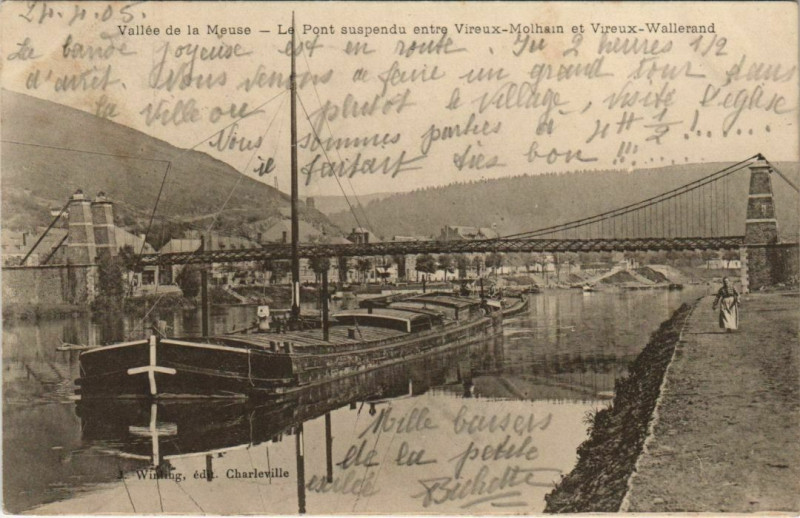 24.4.05.
Vallée de la Meuse — Le Pont suspendu entre Vireux-Molhain et Vireux-Wallerand
La bande joyeuse est en route. Il 2 heures 1/2
d'arrêt. Nous venons de faire un grand tour dans
la ville ou plutôt le village, visité l'église
Nous sommes parties à 4H 1/2 !......
il faitait très bon !!!.....
Mille baisers
de la petite
exilée Bichette
J. Winling, édit. Charleville